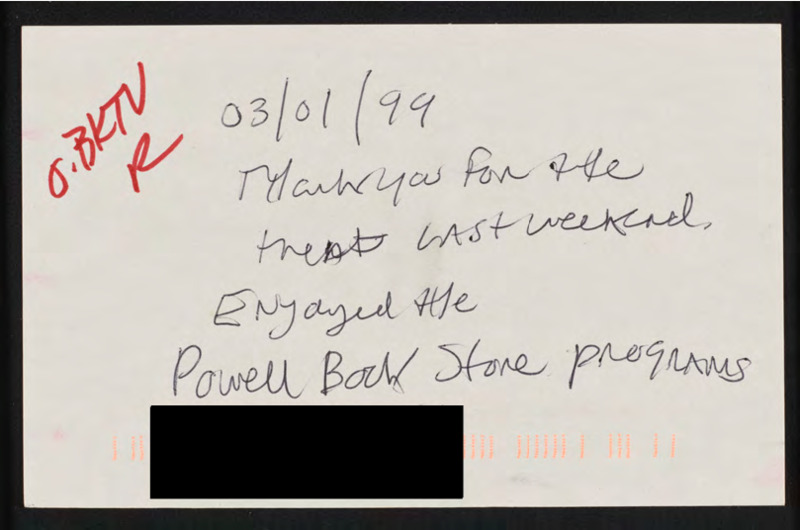 O.BKTV
R
03/01/99
Thank you for the
treat last weekend.
Enjoyed the
Powell Book Store programs